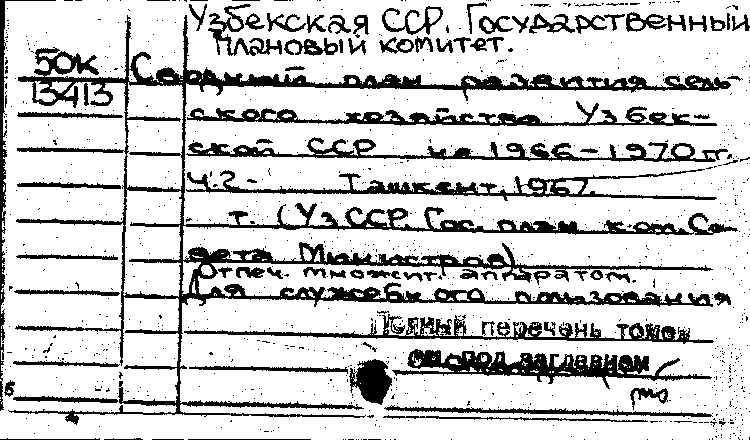 Узбекская ССР. Государственный
плановый комитет.
50К
13413
Сводный план развития сель-
ского хозяйства Узбек-
ской ССР на 1966-1970 гг.
Ч.2- Ташкент, 1967.
т. (УзССР. Гос. план. ком. Со-
вета Министров)
Отпеч. множит. аппаратом.
Для служебного пользования
Полный перечень томов
см. под заглавием